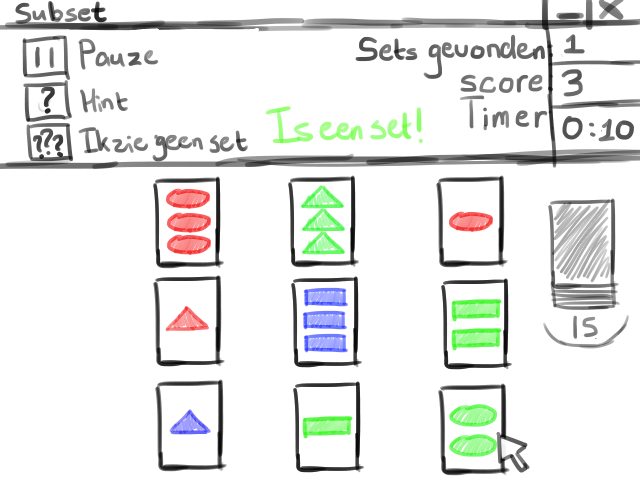 Subset
Pauze
Hint
Ik zie geen set
Is een set!
Sets gevonden 1
score 3
Timer 0:10
?
???
15